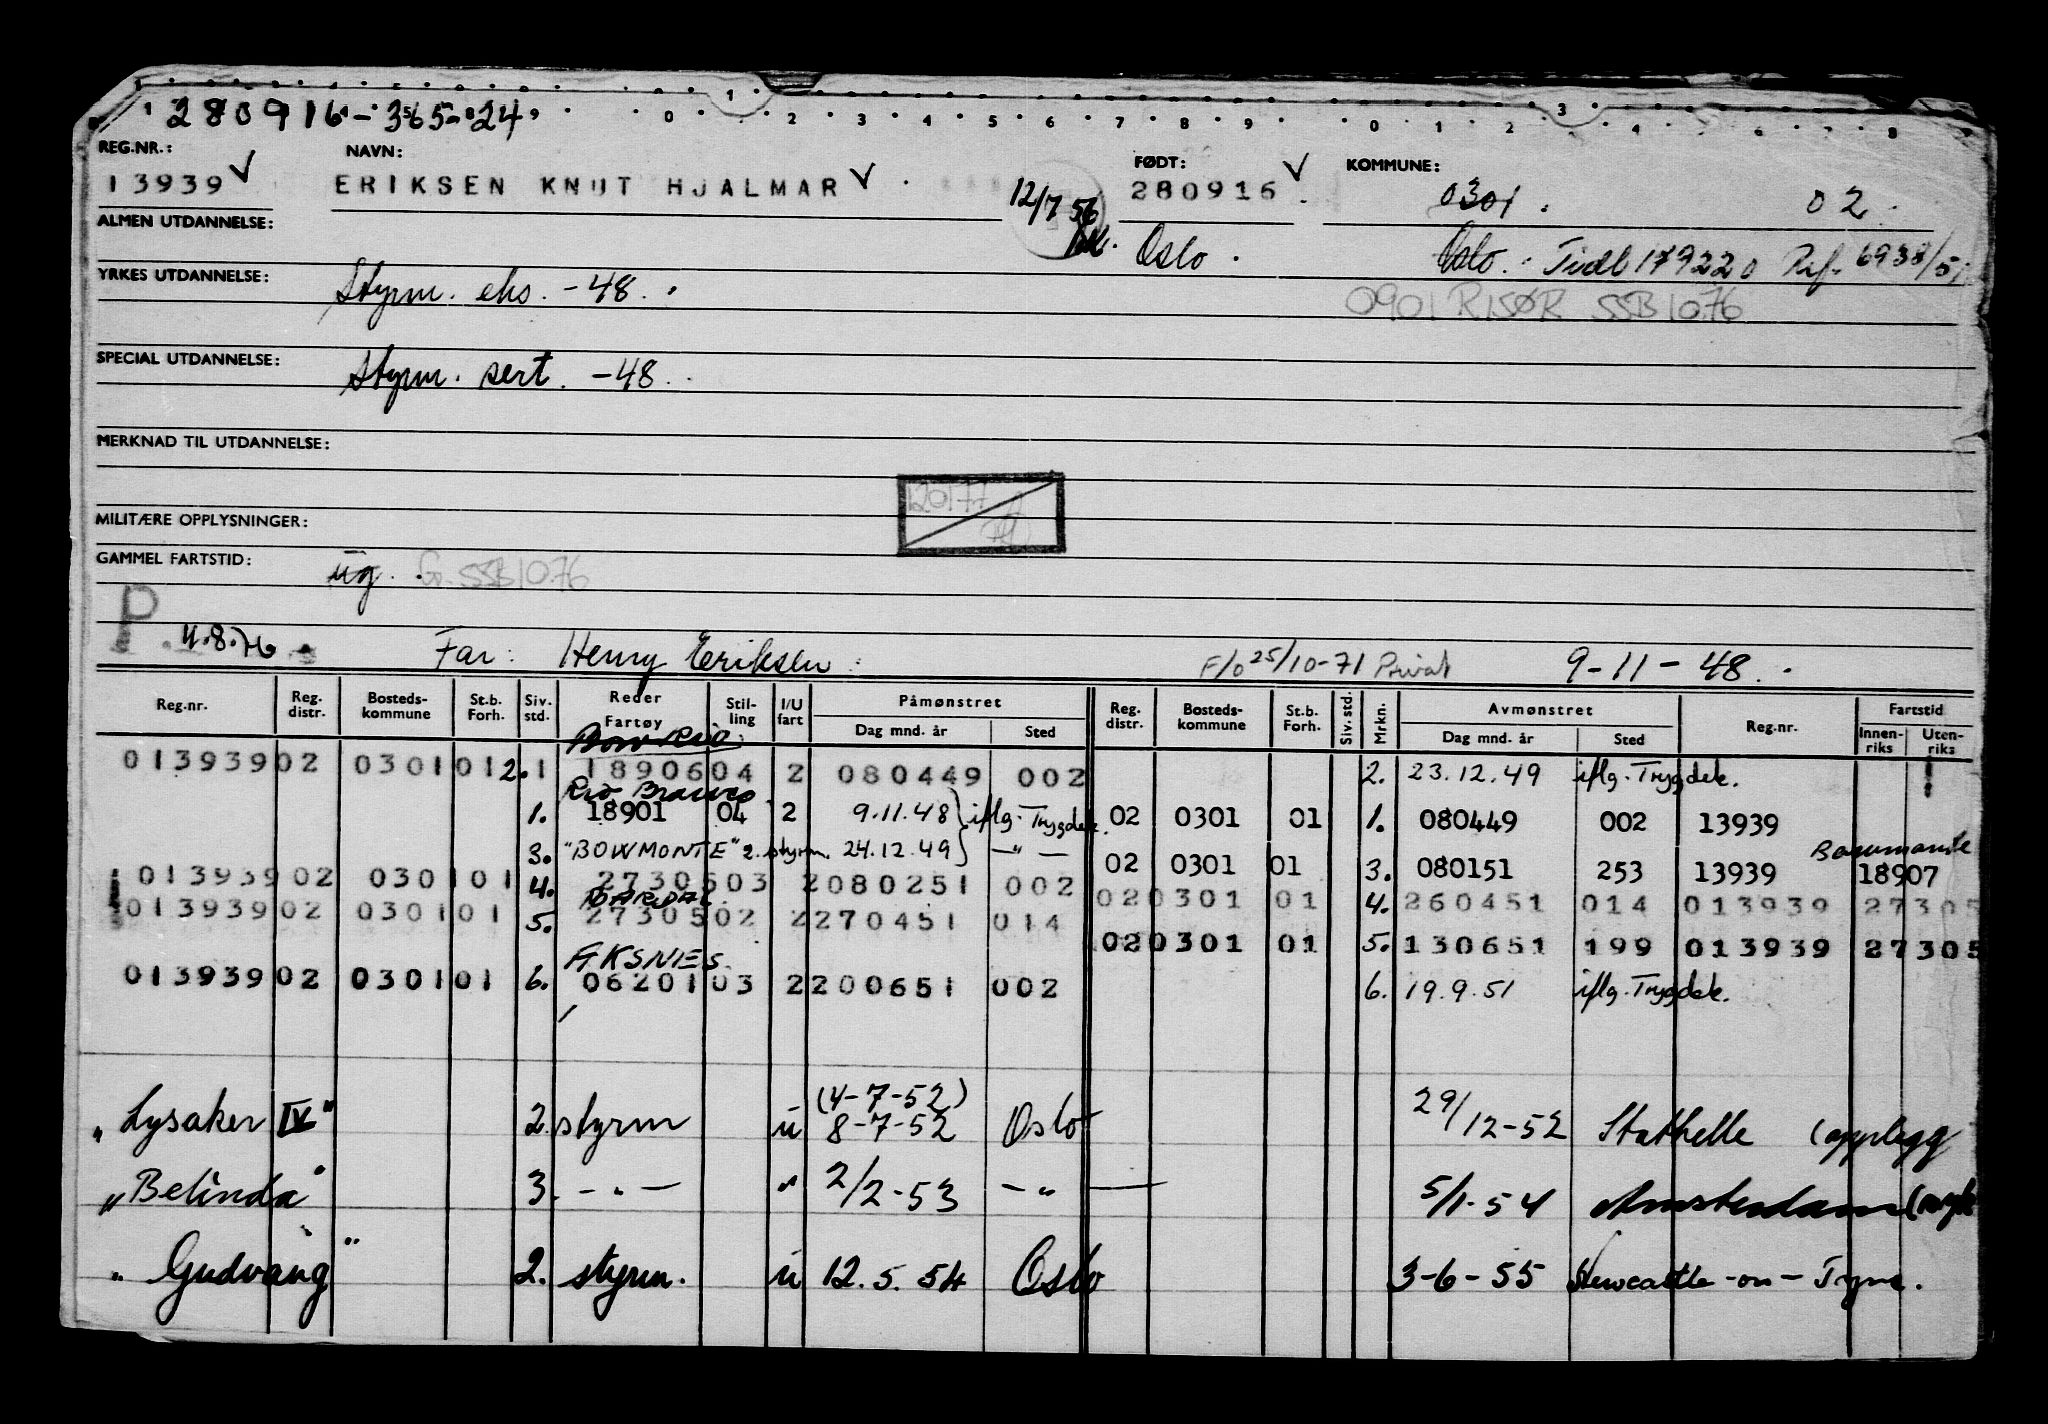 280916-365-24
REG.NR.: NAVN: FØDT: KOMMUNE:
13939 ERIKSEN KNUT HJALMAR 12/7 56 280916 0301 02
ALMEN UTDANNELSE: Oslo Oslo. Tidl 179220 Ref. 6938/51
YRKES UTDANNELSE: Styrm. eks. -48.
0901 RISØR SSB 10.76
SPECIAL UTDANNELSE: Styrm. sert. -48.
MERKNAD TIL UTDANNELSE:
120177
MILITÆRE OPPLYSNINGER:
GAMMEL FARTSTID: ug. G. SSB 10.76
P. 4.8.76 Far: Henry Eriksen F/o 25/10-71 Privat 9-11-48.
Reg.nr. Reg. distr. Bosteds-kommune St.b. Forh. Siv. std. Reder Fartøy Stil-ling I/U fart Påmønstret Dag mnd. år Sted Reg. distr. Bosteds-kommune St.b. Forh. Siv. std. Mrkn. Avmønstret Dag mnd. år Sted Reg.nr. Fartstid Innen-riks Uten-riks
Bow Rio
013939 02 0301 01 2. 1 18906 04 2 080449 002 2. 23.12.49 iflg. Trygdek.
Rio Branco
1. 18901 04 2 9.11.48 iflg. Trygdek. 02 0301 01 1. 080449 002 13939
3. "BOWMONTE" 2. styrm. 24.12.49 —"— 02 0301 01 3. 080151 253 13939 Bowmonte 18907
013939 02 0301 01 4. 27305 03 2 080251 002 02 0301 01 4. 260451 014 013939 27305
013939 02 0301 01 5. 27305 02 2 270451 014 02 0301 01 5. 130651 199 013939 27305
AKSNES
013939 02 0301 01 6. 06201 03 2 200651 002 6. 19.9.51 iflg. Trygdek.
(4-7-52)
"Lysaker IV" 2. styrm u 8-7-52 Oslo 29/12-52 Stathelle (opplegg
"Belinda" 3. —"— " 2/2-53 —"— 5/1-54 Amsterdam
"Gudvang" 2. styrm. u 12.5.54 Oslo 3-6-55 Newcastle-on-Tyne.